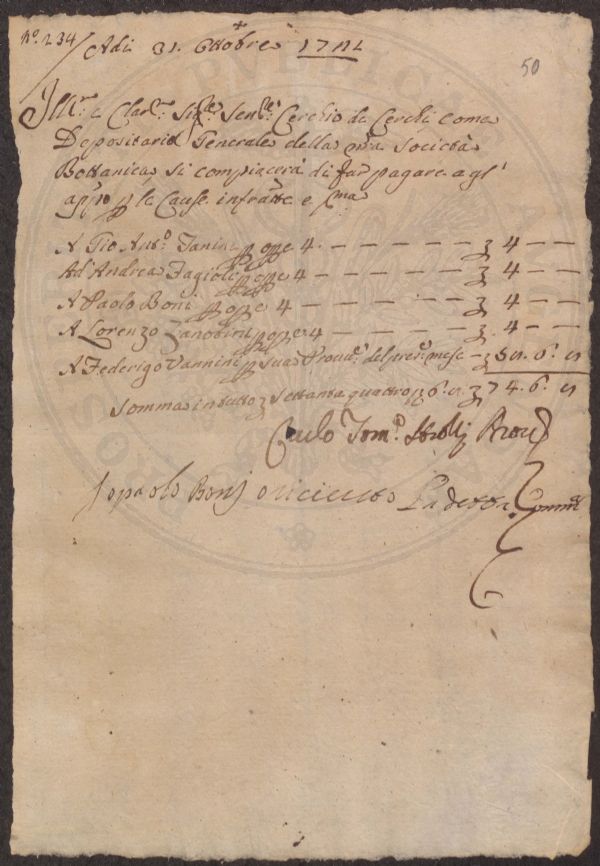 N.º 234
Adi 31. Ottobre 1742
50
Ill.re e Clar.mo Sig.re Sen.re Cerchio de Cerchi come
Depositario Generale della n̄ra Società
Bottanica si compiacerà di far pagare agl'
app.o p le Cause infratte e p.ma
A Gio Ant.º Fanini p opre 4 — — — — — — — 4 — —
Ad Andrea Fagioli p opre 4 — — — — — — — 4 — —
A Paolo Boni p opre 4 — — — — — — — 4 — —
A Lorenzo Zanobini p opre 4 — — — — — — 4 — —
A Federigo Vannini p sua Provv.e del pres.e mese — 6.
Somma in tutto settanta quattro 6. 74. 6.
Carlo Tom.º Strozzi Prov.e
Io paolo Boni o ricieuto La detta Somma